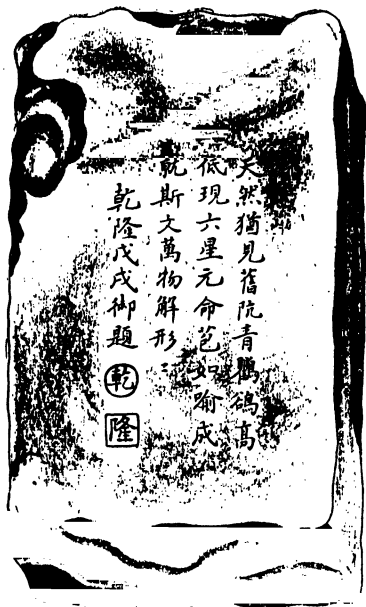 天然猶見舊阬青鸜鵒高
低現六星元命苞如喻成
就斯文萬物解形〻
乾隆戊戌御題
乾
隆